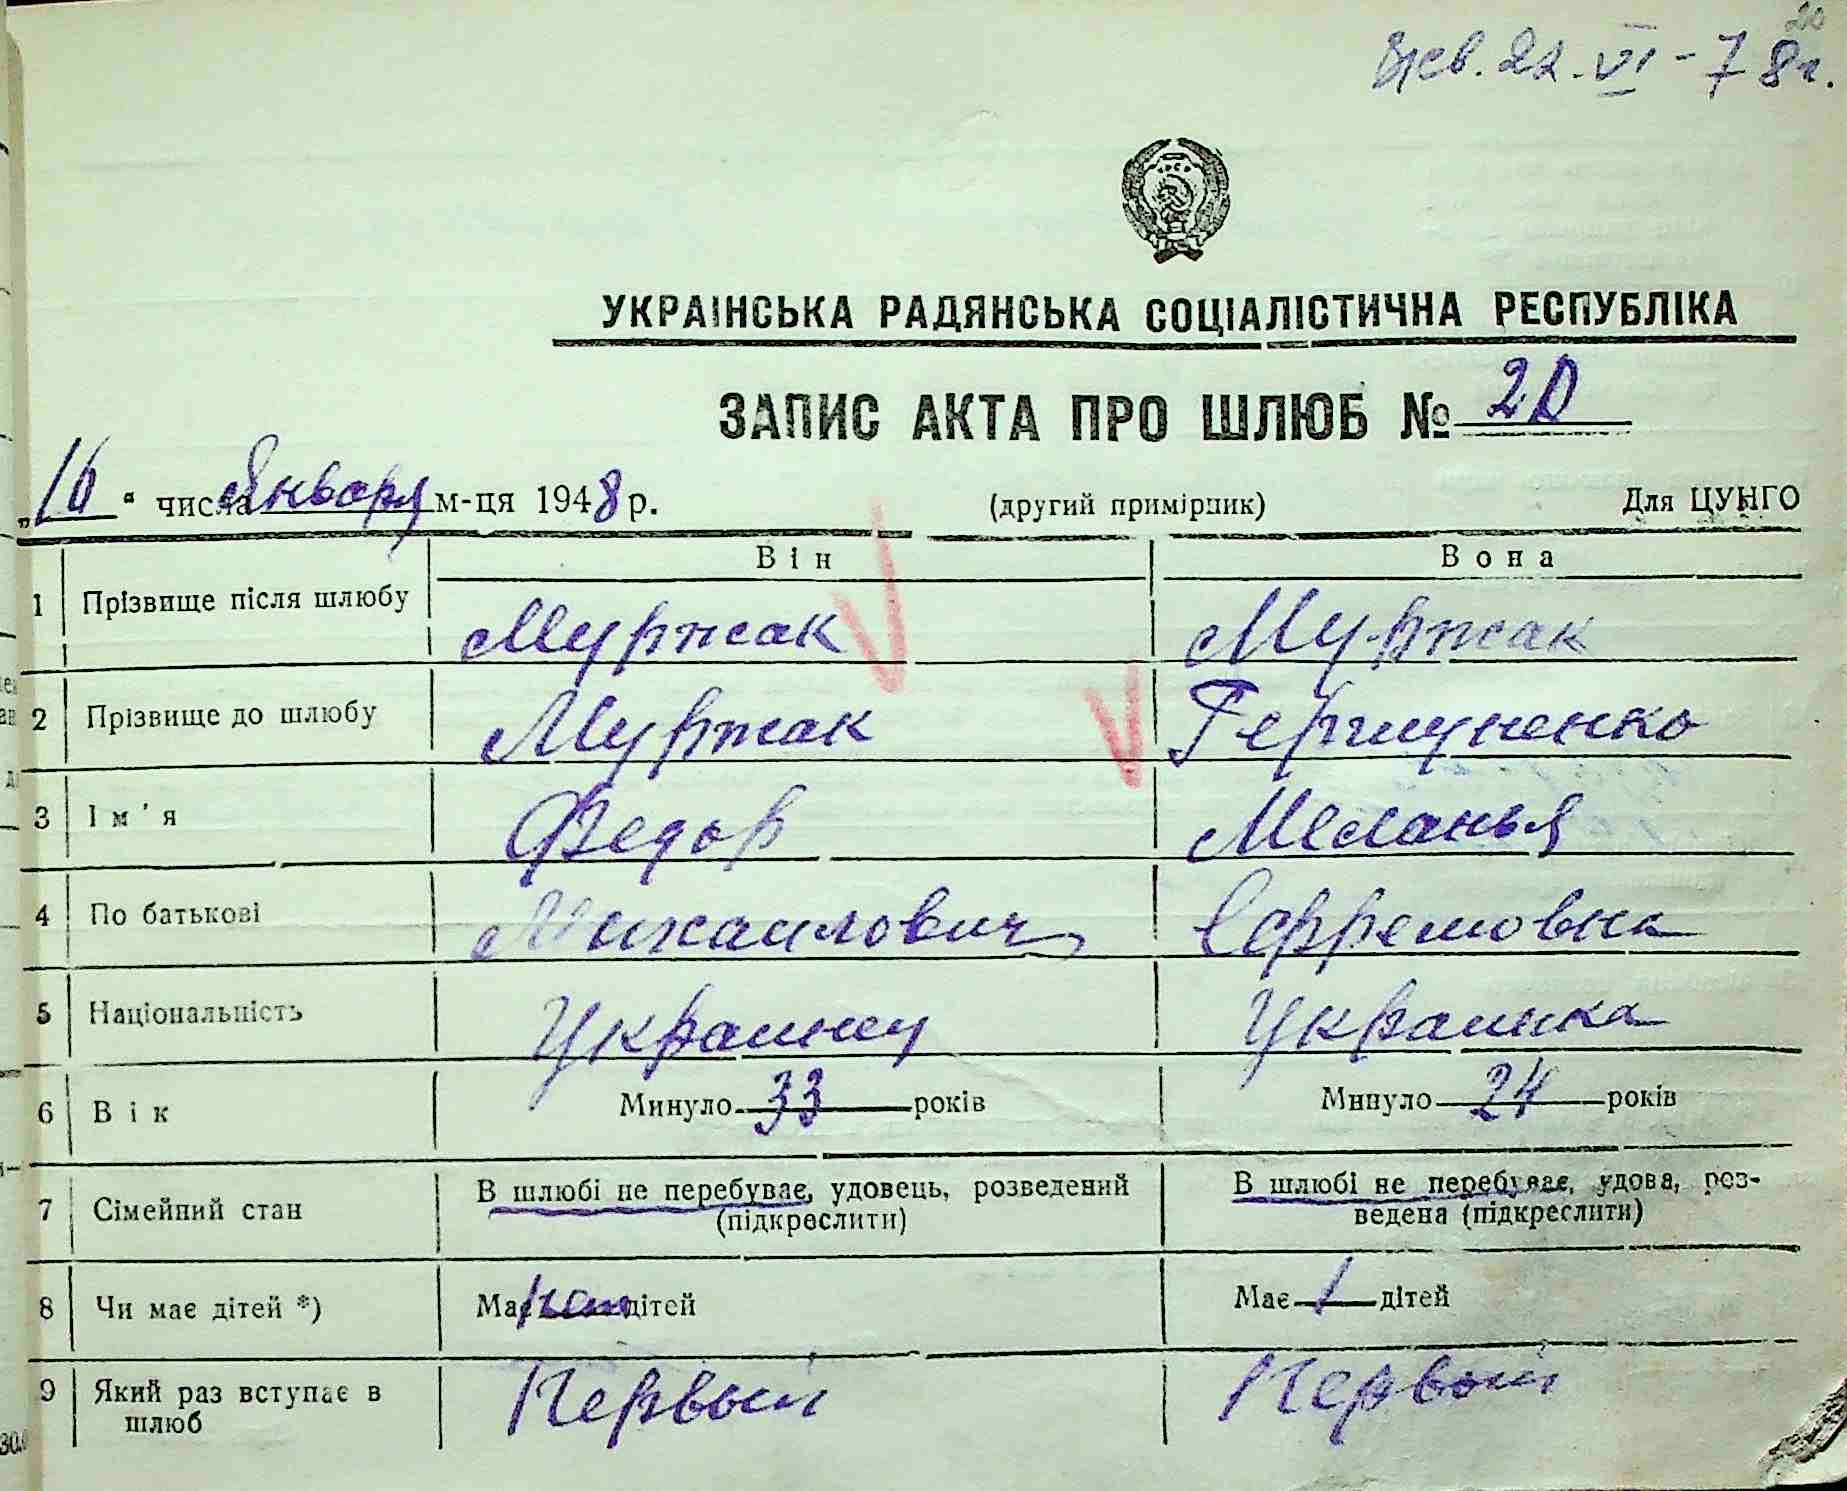 20
22.VI-78г.
УКРАІНСЬКА РАДЯНСЬКА СОЦІАЛІСТИЧНА РЕСПУБЛІКА
ЗАПИС АКТА ПРО ШЛЮБ № 20
„16" числа Января м-ця 1948 р. (другий примірник) Для ЦУНГО
Він Вона
1 Прізвище після шлюбу Муржак Муржак
2 Прізвище до шлюбу Муржак
3 Ім'я Федор Меланья
4 По батькові Михаилович Ефремовна
5 Національність Украинец Украинка
6 Вік Минуло 33 років Минуло 24 років
7 Сімейний стан В шлюбі не перебуває, удовець, розведений (підкреслити) В шлюбі не перебуває, удова, роз-
ведена (підкреслити)
8 Чи має дітей *) Має нет дітей Має 1 дітей
9 Який раз вступає в шлюб Первый Первый